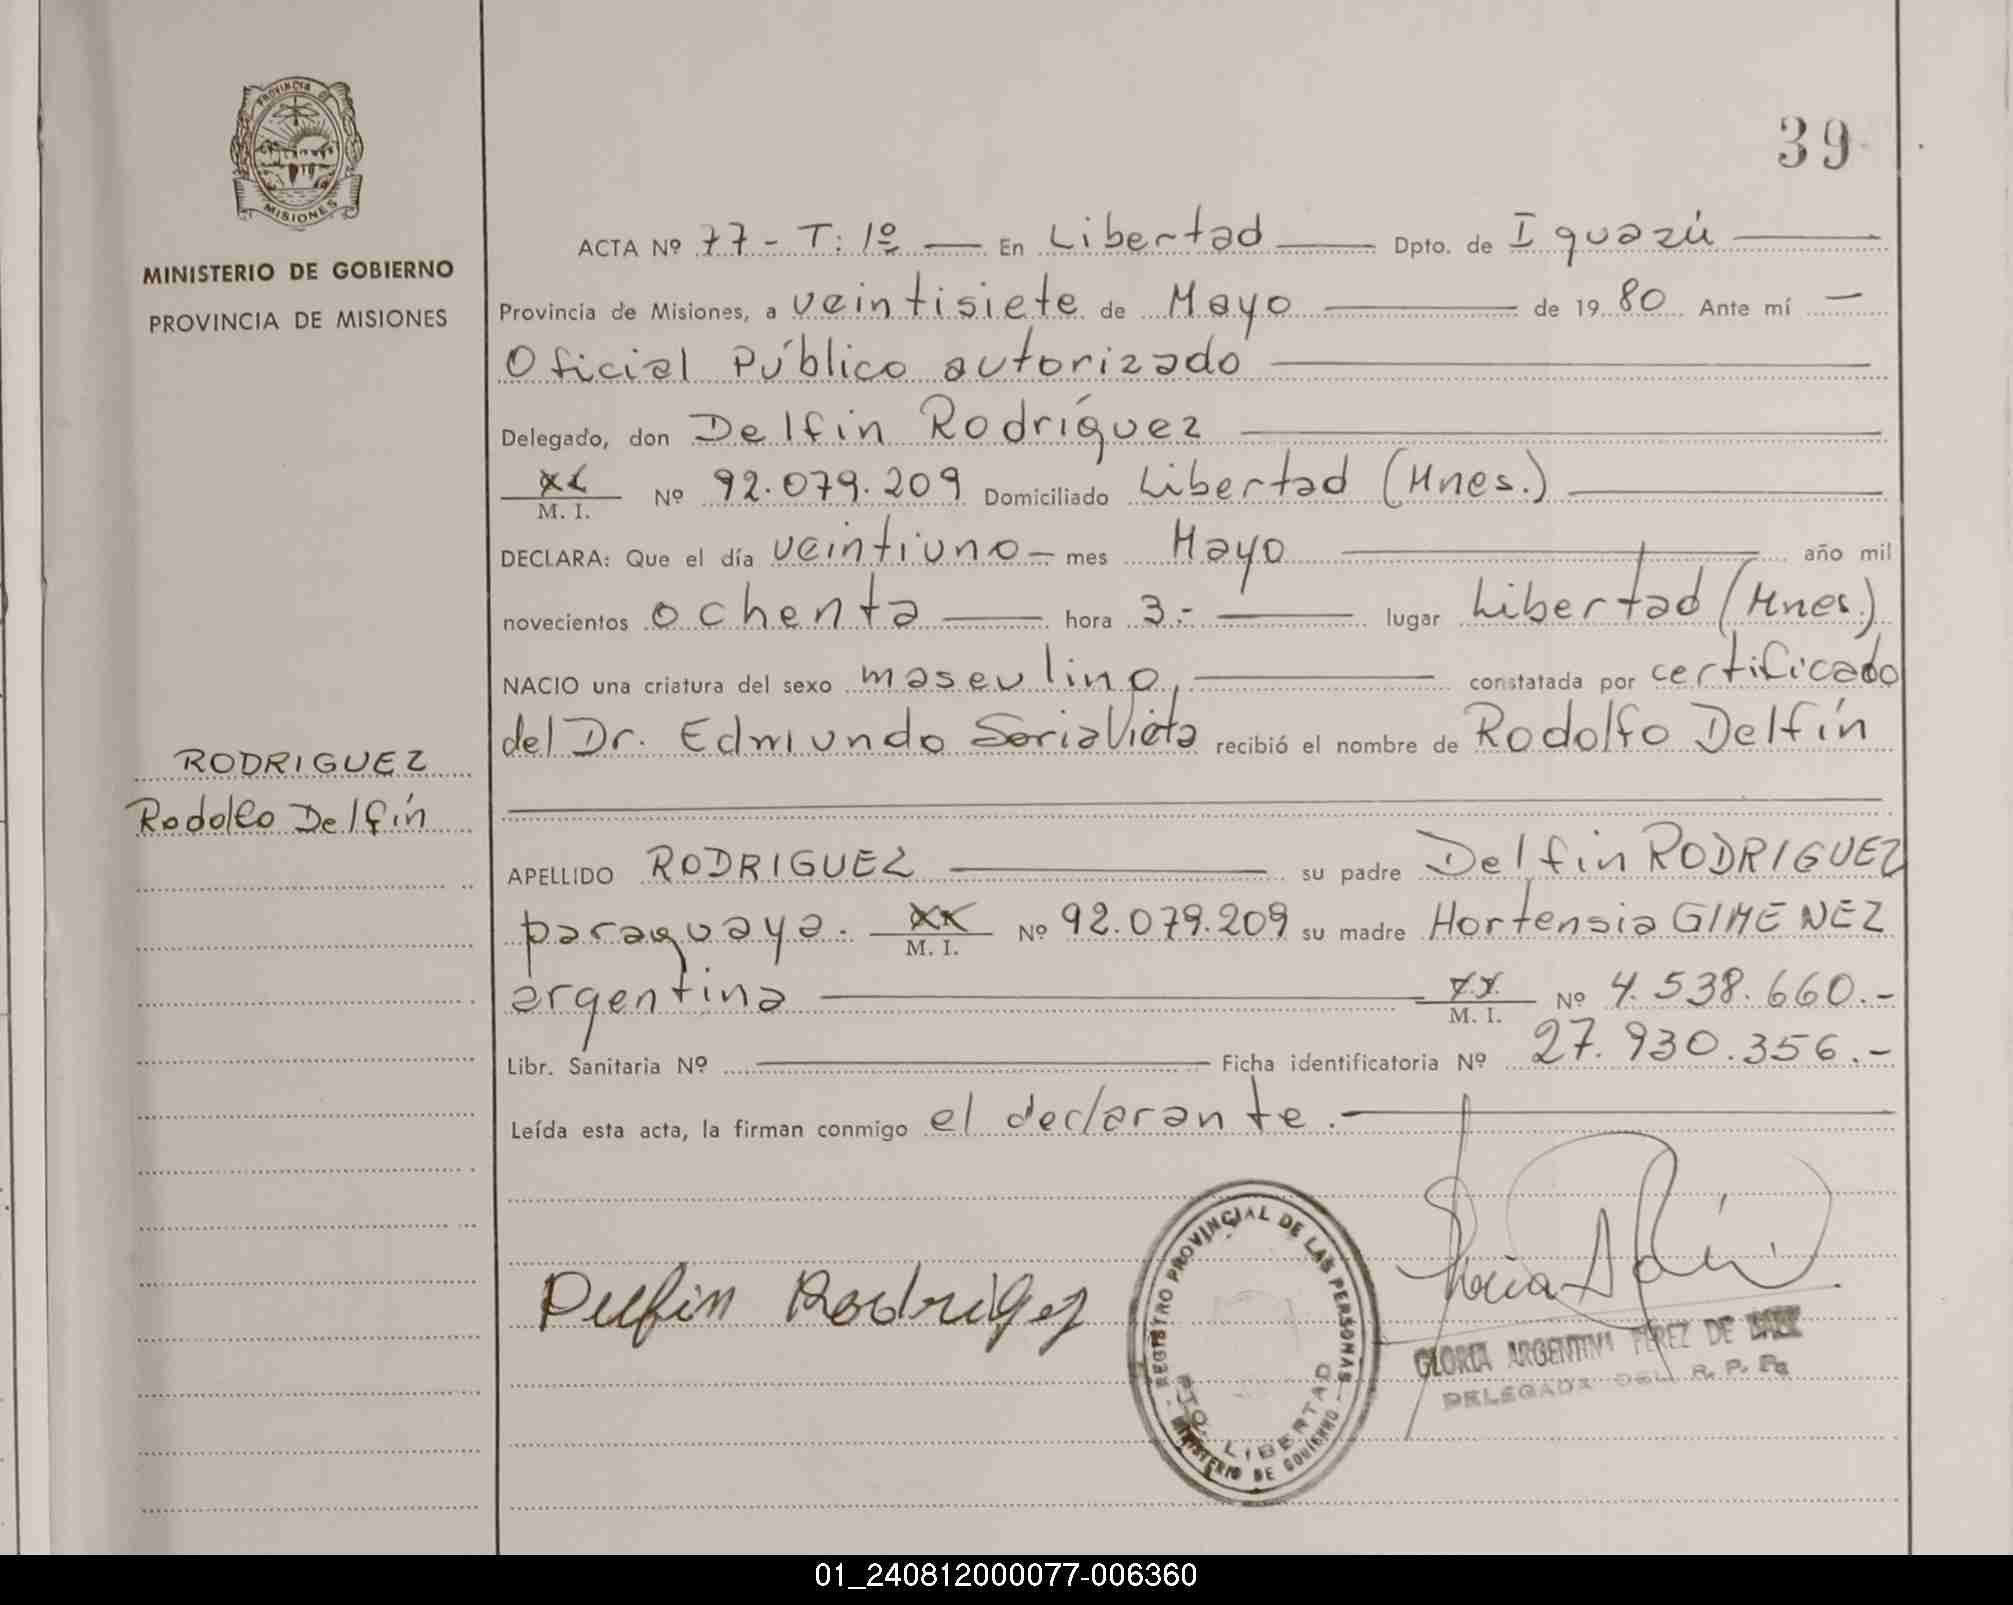 PROVINCIA DE
MISIONES
MINISTERIO DE GOBIERNO
PROVINCIA DE MISIONES
RODRIGUEZ
Rodolfo Delfín
39
ACTA Nº 77 - T: 1º — En Libertad — Dpto. de Iguazú —
Provincia de Misiones, a veintisiete de Mayo — de 1980 Ante mí —
Oficial Público autorizado —
Delegado, don Delfin Rodríguez —
M. I. Nº 92.079.209 Domiciliado Libertad (Mnes.) —
DECLARA: Que el día veintiuno — mes Mayo — año mil
novecientos ochenta — hora 3.- — lugar Libertad (Mnes.)
NACIO una criatura del sexo masculino, — constatada por certificado
del Dr. Edmundo Soria Vieta recibió el nombre de Rodolfo Delfín
APELLIDO RODRIGUEZ — su padre Delfin RODRIGUEZ
paraguaya. xx M. I. Nº 92.079.209 su madre Hortensia GIMENEZ
argentina — xx M. I. Nº 4.538.660.-
Libr. Sanitaria Nº — Ficha identificatoria Nº 27.930.356.-
Leída esta acta, la firman conmigo el declarante. —
Delfin Rodrigez
REGISTRO PROVINCIAL DE LAS PERSONAS
PTO. LIBERTAD
- MINISTERIO DE GOBIERNO -
GLORIA ARGENTINA PEREZ DE
DELEGADA DEL R. P. Ps
01_240812000077-006360